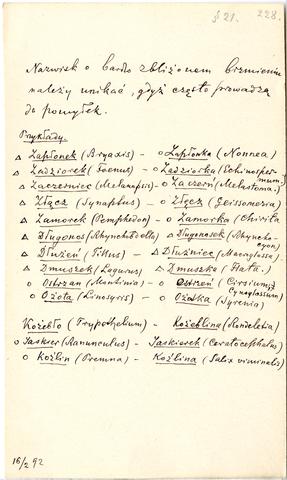 § 21. 228.
Nazwisk o bardo zbliżonem brzmieniu
należy unikać, gdyż często prowadzą
do pomyłek.
Przykłady.
△ Zapłonek (Bryaxis) – o Zapłonka (Nonnea)
△ Zadziorek (Foenus) – o Zadziorka (Echinospermum)
△ Zaczerniec (Melanopsis) – o Zaczerń (Melastoma)
△ Złącz (Synaptus) – o Złęcz (Geissomeria)
△ Zamorek (Pemphredon) – o Zamorka (Chirita
△ Długonos (Rhynchobdella) – △ Długonosek (Rhynchocyon)
△ Dłużeń (Tillus) – △ Dłużniec (Macroglossa)
△ Dmuszek (Lagurus) – △ Dmuszka (
o Ostrzan (Manlinia) – o Ostrzeń (Cirsium, Cynoglossum)
o Ożota (Linosyris) – o Ożodka (Syrenia)
Koźebło (Trypothelium) – Koźeblina (Rondeletia)
o Jaskier (Ranunculus) – Jaskierek (Ceratocephalus)
o Koźlin (Premna) – Koźlina (Salix viminalis)
16/2 92